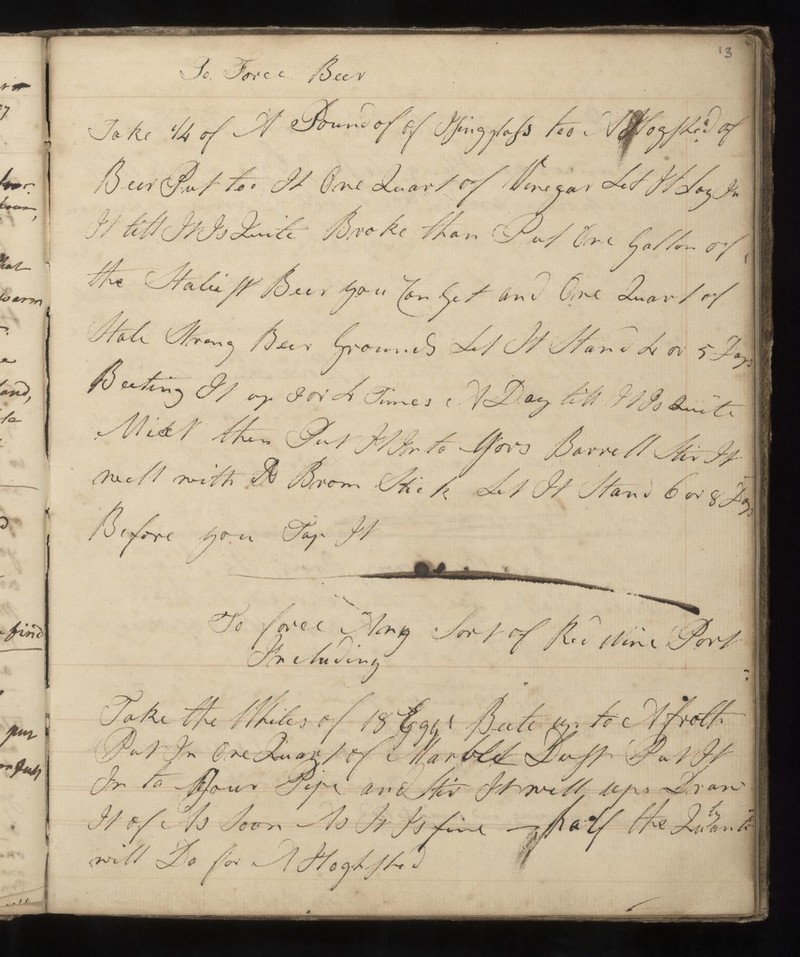 13
To Force Beer
Take 1/4 of A Pound of of Isingglass too A Hogshed of
Beer Put too It One Quart of Vinegar Let It Lay In
It till It Is Quite Broke than Put One Gallon of
the Stalie st Beer you Can Get and One Quart of
Stale Strong Beer Grounds Let It Stand 4 or 5 Days
Beeting It up 3 or 4 Times A Day till It Is Quite
Mixt then Put It In to Yors Barrell Stir It
well with A Brom Stick Let It Stand 6 or 8 Days
Before you Tap It
To force Any Sort of Red Wine Port
Including
Take the Whites of 18 Eggs Beete up to A froth
Put In One Quart of Marbel Dust Put It
In to Your Pipe and Stir It well up Draw
It of As Soon As It Is fine half the Quantity
will Do for A Hoghshed
find
put
warm